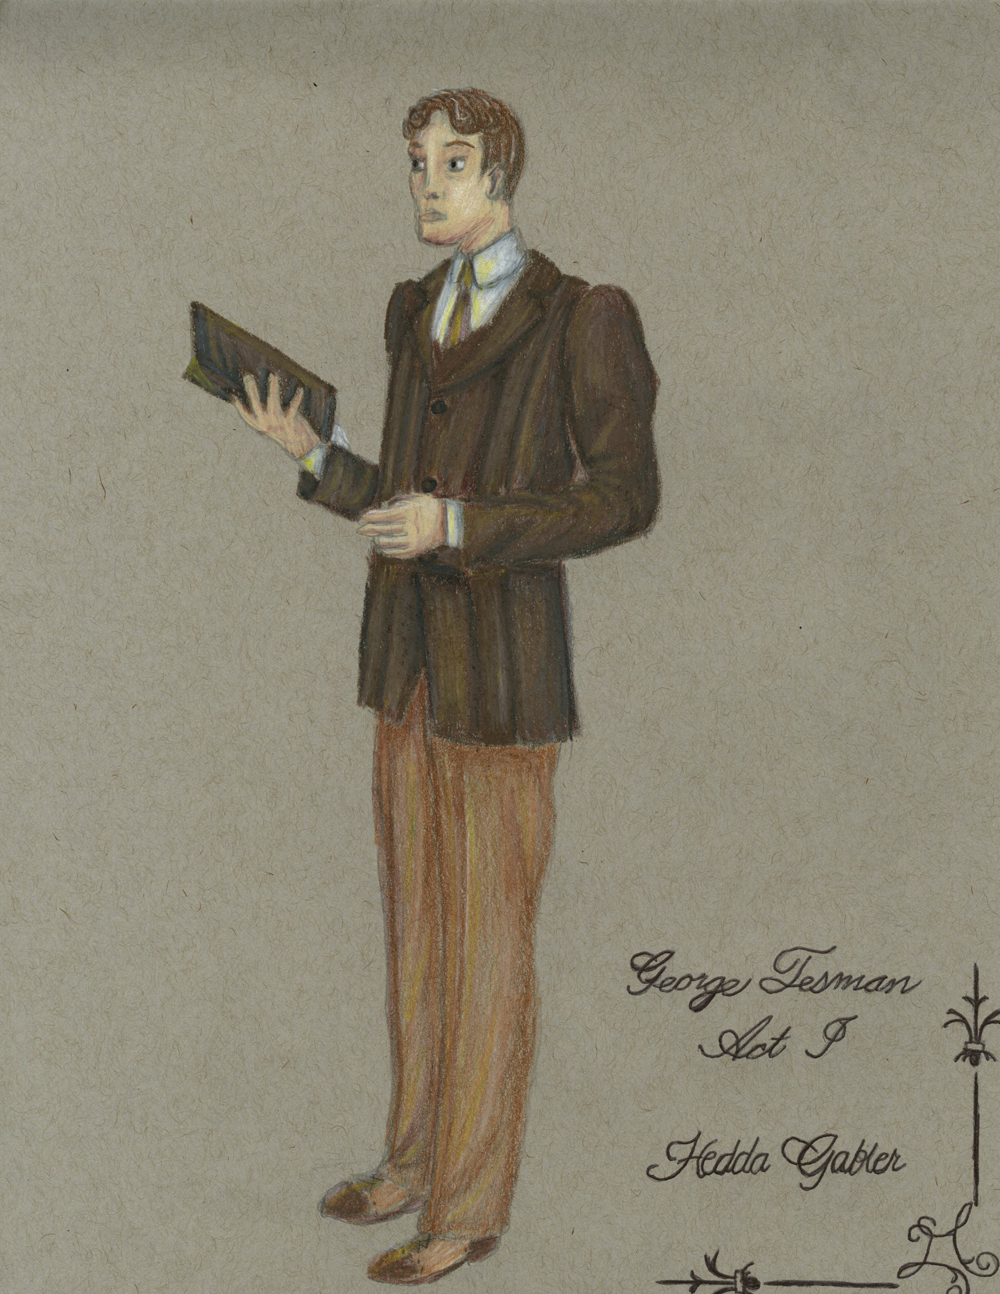 George Tesman
Act I
Hedda Gabler
H